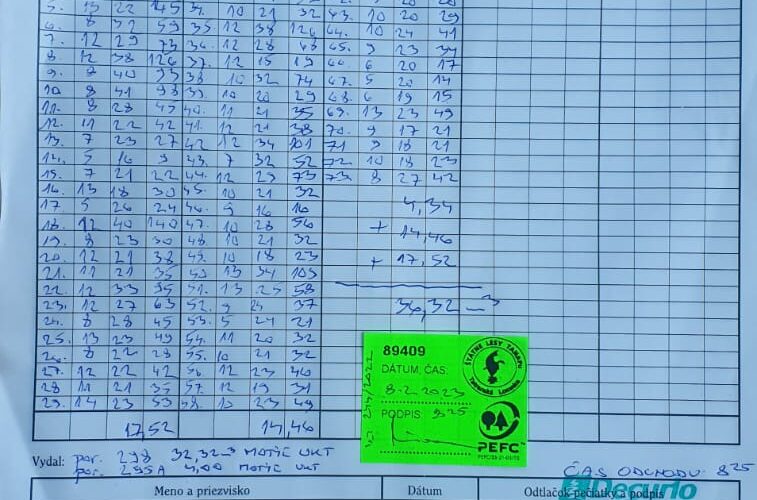 5. 13 22 45 34. 10 21 32 63. 10 20 29
6. 8 32 59 35. 12 38 126 64. 10 24 41
7. 12 29 73 36. 12 28 65. 9 23 34
8. 12 38 126 37. 12 15 19 66. 6 20 17
9. 8 40 93 38. 10 32 74 67. 5 20 14
10. 8 41 98 39. 10 20 29 68. 6 19 15
11. 8 28 45 40. 11 21 35 69. 13 23 49
12. 11 22 42 41. 12 21 38 70. 9 17 21
13. 7 23 27 42 12 34 101 71 9 18 21
14. 5 16 9 43. 7 32 52 72. 10 18 23
15. 7 21 22 44. 12 29 73 73. 8 27 42
16. 13 18 30 45. 10 21 32
17. 5 26 24 46. 9 16 16 4,34
18. 12 40 140 47. 10 28 56 + 14,46
19. 8 23 30 48. 10 21 32
20. 12 21 38 49. 10 18 23 + 17,52
21. 11 21 35 50. 13 34 109
22. 12 33 95 51. 13 25 58
23. 12 27 63 52. 9 37 36,32
24. 8 28 45 53. 5 24 21
25. 13 23 49 54. 11 20 32
26. 8 22 28 55. 10 21 32
27. 12 22 42 56. 12 23 46
28 11 21 35 57. 12 19 31
29. 14 23 53 58. 13 23 49
17,52 14,46
89409
DÁTUM, ČAS.
8.2.2023
PODPIS 825
ŠTÁTNE LESY TANAPU
Tatranská Lomnica
PEFC™
Vydal: por. 298 32,32 m3 MOTIC UKT
por. 295A 4,00 MOTIC UKT
ČAS ODCHODU: 825
Meno a priezvisko Dátum Odtlačok pečiatky a podpis